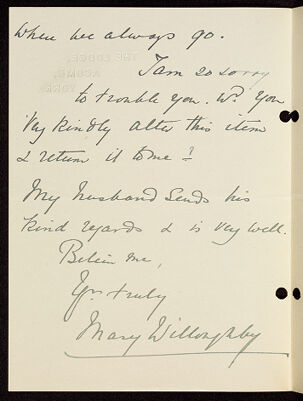 where we always go.
I am so sorry
to trouble you. Wd. you
very kindly alter this item
& return it to me?
My husband sends his
kind regards & is very well.
Believe me,
Yrs truly
Mary Willoughby
THE LODGE,
ACOMB,
YORK.